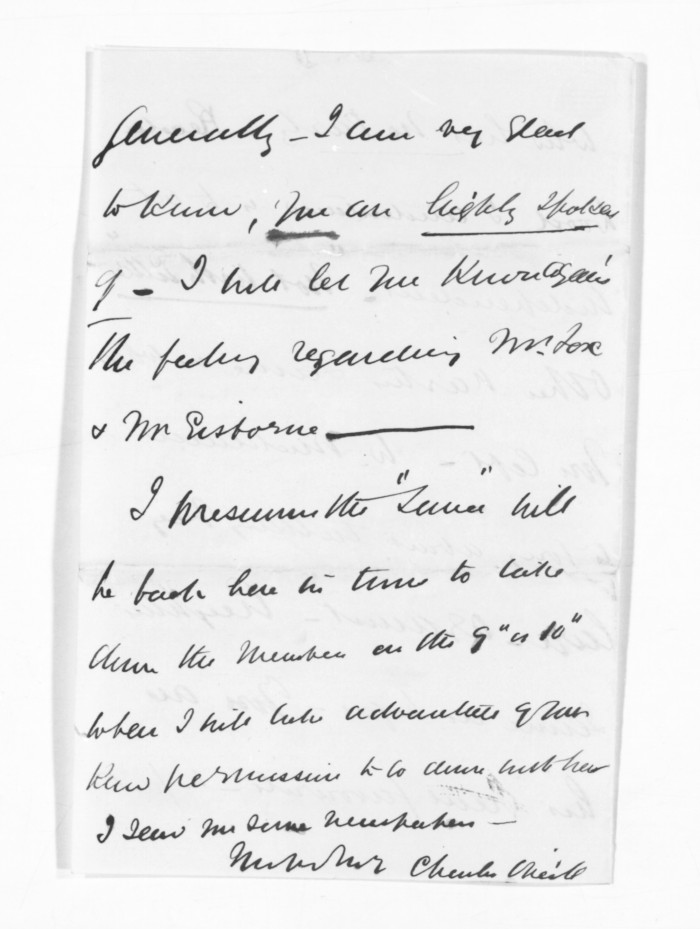 generally - I am very glad
to know, you are highly spoken
of - I will let you know again
the feeling regarding Mr. Fox
& Mr Gisborne
I presume the "Luna" will
be back here in time to take
down the Members on the 9" or 10"
when I will take advantage of your
kind permission to go down with her
I send you some newspapers -
Charles